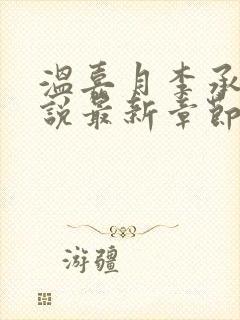 溫喜月李承
說最新章節
游疆